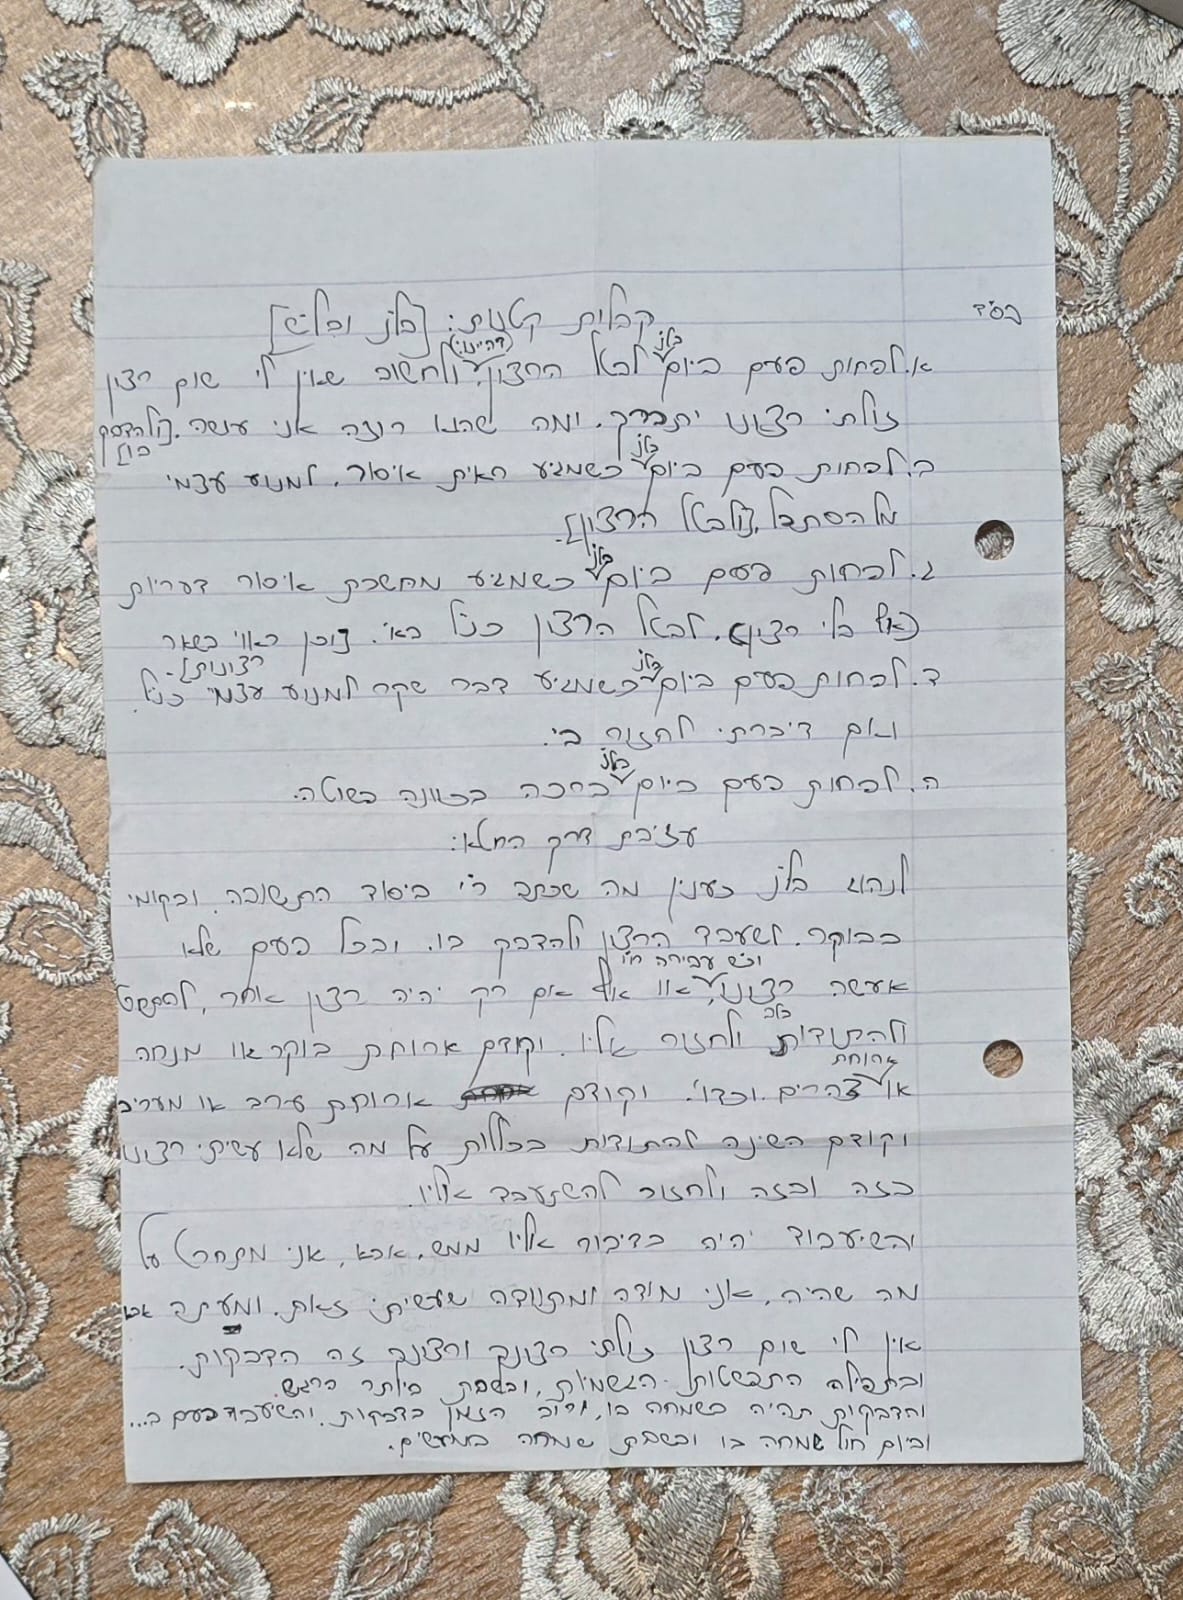 בס"ד
קבלות קטנות: [בל"נ ובל"ש]
א. לפחות פעם ביום בל"נ לבטל הרצון, (דהיינו:) ולחשוב שאין לי שום רצון
זולתי רצונו יתברך. ומה שהוא רוצה אני עושה. [ולהדבק בו]
ב. לפחות פעם ביום בל"נ כשמגיע ראית איסור, למנוע עצמי
מלהסתכל, [ולבטל הרצון].
ג. לפחות פעם ביום בל"נ כשמגיע מחשבת איסור דעריות
(אף בלי רצון), לבטל הרצון כנ"ל בא'. [וכן ראוי בשאר רצונות].
ד. לפחות פעם ביום בל"נ כשמגיע דבר שקר למנוע עצמי כנ"ל.
ואם דיברתי לחזור בי.
ה. לפחות פעם ביום בל"נ ברכה בכוונה פשוטה.
עזיבת דרך החטא:
לנהוג בל"נ כענין מה שכתב ר"י ביסוד התשובה, ובקומי
בבוקר, לשעבד הרצון ולהדבק בו. ובכל פעם שלא
אעשה רצונו, וכ"ש עבירה ח"ו או אף אם רק יהיה רצון אחר, להתחרט
ולהתודות ולחזור אליו. וקודם ארוחת בוקר או מנחה
או ארוחת צהרים וכדו'. וקודם ארוחת ערב או מעריב
וקודם השינה להתודות בכללות על מה שלא עשיתי רצונו
בזה ובזה ולחזור להשתעבד אליו.
והשיעבוד יהיה בדיבור אליו ממש, אבא, אני מתחרט על
מה שהיה, אני מודה ומתוודה שעשיתי זאת, ומעתה אבא
אין לי שום רצון זולתי רצונך ורצונך זה הדבקות.
ובתפילה התפשטות הגשמיות, ובשבת ביותר ברגש.
והדבקות תהיה בשמחה בו, ורוב הזמן בדבקות, והשיעבוד פעם ב...
וביום חול שמחה בו ובשבת שמחה במעשים.